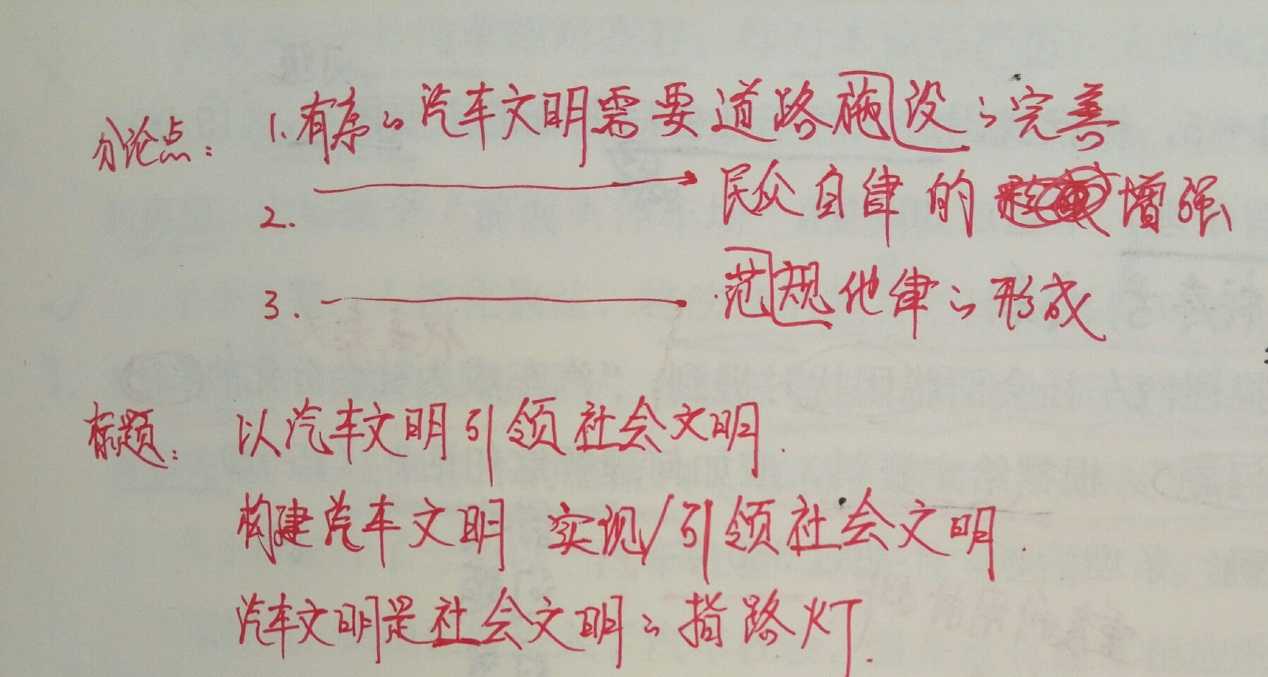 分论点: 1.有序的汽车文明需要道路施设的完善
2. 民众自律的增强
3. 范规他律的形成
标题: 以汽车文明引领社会文明.
构建汽车文明 实现/引领社会文明.
汽车文明是社会文明的指路灯.